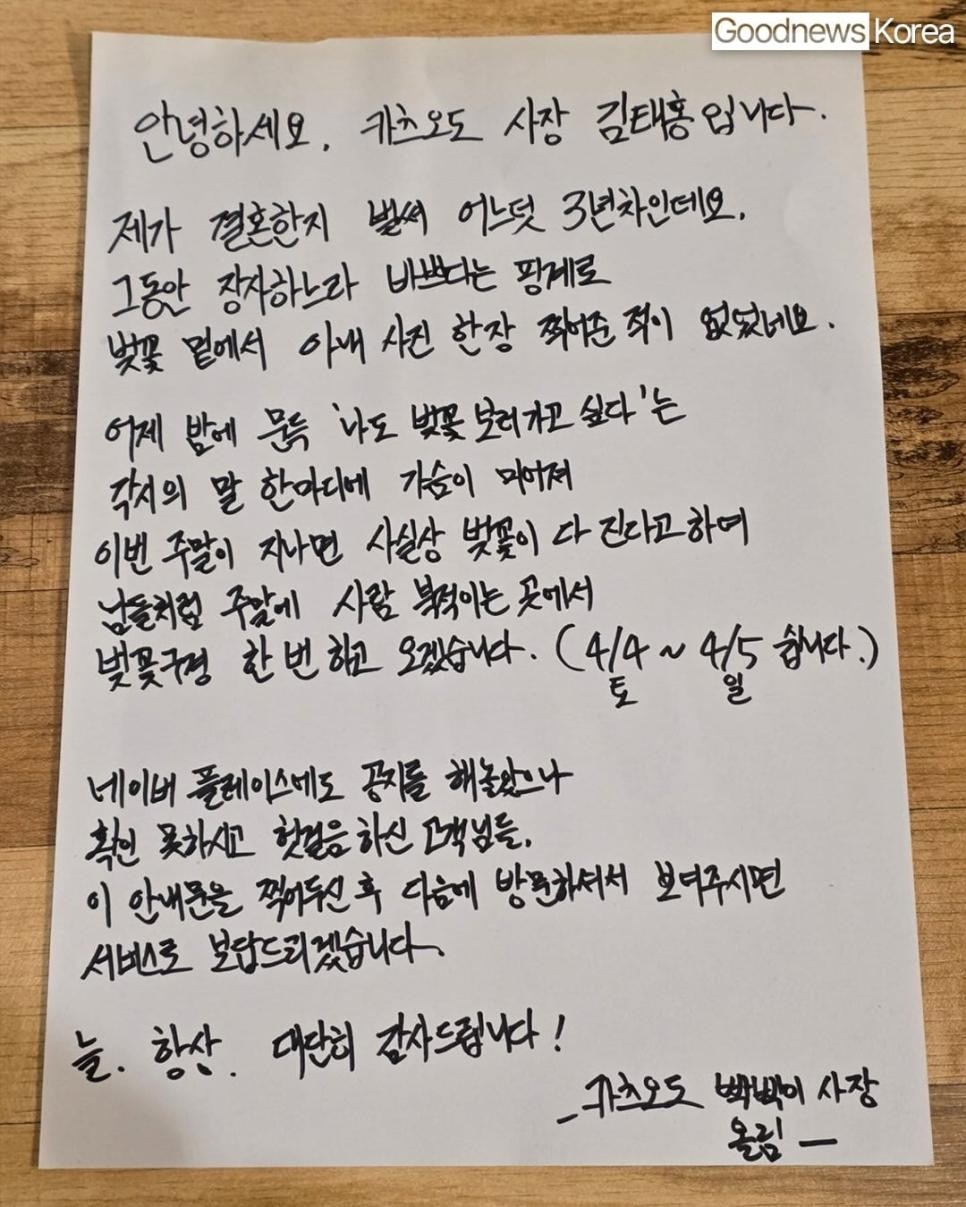 Goodnews Korea
안녕하세요. 카츠오도 사장 김태홍입니다.
제가 결혼한지 벌써 어느덧 3년차인데요.
그동안 장사하느라 바쁘다는 핑계로
벚꽃 밑에서 아내 사진 한장 찍어준 적이 없었네요.
어제 밤에 문득 '나도 벚꽃 보러가고 싶다'는
각시의 말 한마디에 가슴이 미어져
이번 주말이 지나면 사실상 벚꽃이 다 진다고하여
남들처럼 주말에 사람 북적이는 곳에서
벚꽃구경 한 번 하고 오겠습니다. (4/4 ~ 4/5 쉽니다.)
토 일
네이버 플레이스에도 공지를 해놓았으나
확인 못하시고 헛걸음 하신 고객님들.
이 안내문을 찍어두신 후 다음에 방문하셔서 보여주시면
서비스로 보답드리겠습니다.
늘. 항상. 대단히 감사드립니다!
- 카츠오도 빡빡이 사장
올림 -